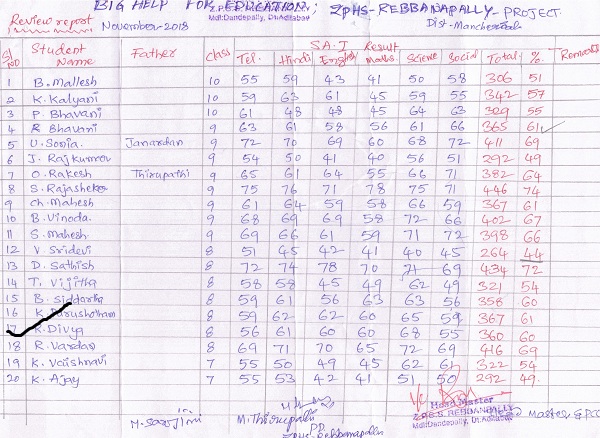 BIG HELP FOR EDUCATION; ZPHS-REBBANAPALLY-PROJECT
Review report November-2018 Mdl:Dandepally, Dt:Adilabad Dist-Mancherial
SA-I Result
Sl NO Student Name Father Class Tel. Hindi English Maths Science Social Total % Remarks
1 B. Mallesh 10 55 59 43 41 50 58 306 51
2 K. Kalyani 10 59 63 61 45 59 55 342 57
3 P. Bhavani 10 61 48 48 45 64 63 329 55
4 R Bhavani 9 63 61 58 56 61 66 365 61
5 U. Sonia. Janardan 9 72 70 69 60 68 72 411 69
6 J. Rajkumar 9 54 50 41 40 56 51 292 49
7 O. Rakesh Thirupathi 9 65 61 64 55 66 71 382 64
8 S. Rajasheker 9 75 76 71 78 75 71 446 74
9 Ch. Mahesh 9 61 64 59 58 66 59 367 61
10 B. Vinoda. 9 68 69 69 58 72 66 402 67
11 S. Mahesh 9 69 66 61 59 71 72 398 66
12 V. Sridevi 8 51 45 42 41 40 45 264 44
13 D. Sathish 8 72 74 78 70 71 69 434 72
14 T. Vijitha 8 58 58 45 49 62 49 321 54
15 B. Siddartha 8 59 61 56 63 63 56 358 60
16 K. Purushotham 8 59 62 62 60 65 59 367 61
17 K. Divya 8 56 61 60 60 68 55 360 60
18 R. Vardan 8 69 71 70 65 72 69 416 69
19 K. Vaishnavi 7 55 50 49 45 62 61 322 54
20 K. Ajay 7 55 53 42 41 51 50 292 49.
M. Sarojini M. Thirupathi PD ZPHS-Rebbanapalli Head Master Z.P.H.S. REBBANAPALLY Mdl:Dandepally, Dt:Adilabad Master